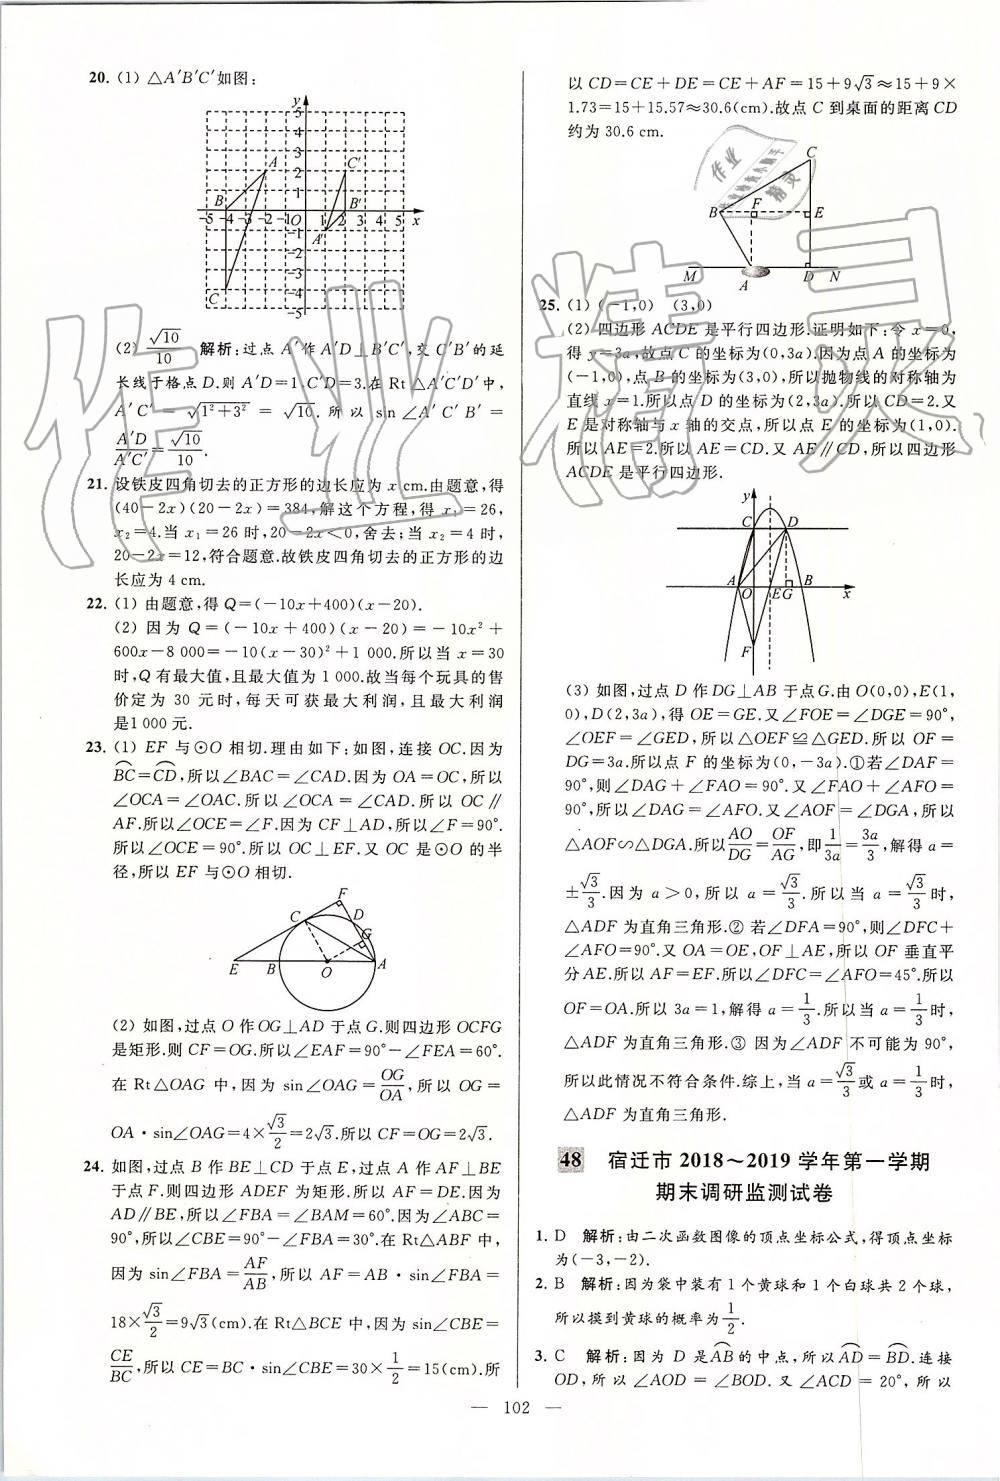 20. (1) △A′B′C′如图:
y
5
4
3
2
1
A
C′
B
B′
-5 -4 -3 -2 -1 O 1 2 3 4 5 x
-1
-2
-3
-4
-5
A′
C
(2) √10/10 解析:过点 A′作 A′D⊥B′C′,交 C′B′的延
长线于格点 D.则 A′D=1,C′D=3.在 Rt△A′C′D′中,
A′C′=√(1²+3²)=√10.所以 sin∠A′C′B′=
A′D/A′C′=√10/10.
21. 设铁皮四角切去的正方形的边长应为 x cm.由题意,得
(40-2x)(20-2x)=384,解这个方程,得 x₁=26,
x₂=4.当 x₁=26 时,20-2x<0,舍去;当 x₂=4 时,
20-2x=12,符合题意.故铁皮四角切去的正方形的边
长应为 4 cm.
22. (1) 由题意,得 Q=(-10x+400)(x-20).
(2) 因为 Q=(-10x+400)(x-20)=-10x²+
600x-8 000=-10(x-30)²+1 000.所以当 x=30
时,Q 有最大值,且最大值为 1 000.故当每个玩具的售
价定为 30 元时,每天可获最大利润,且最大利润
是1 000 元.
23. (1) EF 与⊙O 相切.理由如下:如图,连接 OC.因为
B͡C=C͡D,所以∠BAC=∠CAD.因为 OA=OC,所以
∠OCA=∠OAC.所以∠OCA=∠CAD.所以 OC∥
AF.所以∠OCE=∠F.因为 CF⊥AD,所以∠F=90°.
所以∠OCE=90°.所以 OC⊥EF.又 OC 是⊙O 的半
径,所以 EF 与⊙O 相切.
F
C
D
G
E B O A
(2) 如图,过点 O 作 OG⊥AD 于点 G.则四边形 OCFG
是矩形.则 CF=OG.所以∠EAF=90°-∠FEA=60°.
在 Rt△OAG 中,因为 sin∠OAG=OG/OA,所以 OG=
OA·sin∠OAG=4×√3/2=2√3.所以 CF=OG=2√3.
24. 如图,过点 B 作 BE⊥CD 于点 E,过点 A 作 AF⊥BE
于点 F.则四边形 ADEF 为矩形.所以 AF=DE.因为
AD∥BE,所以∠FBA=∠BAM=60°.因为∠ABC=
90°,所以∠CBE=90°-∠FBA=30°.在 Rt△ABF 中,
因为 sin∠FBA=AF/AB,所以 AF=AB·sin∠FBA=
18×√3/2=9√3(cm).在 Rt△BCE 中,因为 sin∠CBE=
CE/BC,所以 CE=BC·sin∠CBE=30×1/2=15(cm).所
以 CD=CE+DE=CE+AF=15+9√3≈15+9×
1.73=15+15.57≈30.6(cm).故点 C 到桌面的距离 CD
约为 30.6 cm.
C
B F E
M A D N
25. (1) (-1,0) (3,0)
(2) 四边形 ACDE 是平行四边形.证明如下:令 x=0,
得 y=3a,故点 C 的坐标为(0,3a).因为点 A 的坐标为
(-1,0),点 B 的坐标为(3,0),所以抛物线的对称轴为
直线 x=1.所以点 D 的坐标为(2,3a).所以 CD=2.又
E 是对称轴与 x 轴的交点,所以点 E 的坐标为(1,0).
所以 AE=2.所以 AE=CD.又 AE∥CD,所以四边形
ACDE 是平行四边形.
y
C D
A O E G B x
F
(3) 如图,过点 D 作 DG⊥AB 于点 G.由 O(0,0),E(1,
0),D(2,3a),得 OE=GE.又∠FOE=∠DGE=90°,
∠OEF=∠GED,所以△OEF≌△GED.所以 OF=
DG=3a.所以点 F 的坐标为(0,-3a).①若∠DAF=
90°,则∠DAG+∠FAO=90°.又∠FAO+∠AFO=
90°,所以∠DAG=∠AFO.又∠AOF=∠DGA,所以
△AOF∽△DGA.所以AO/DG=OF/AG,即1/3a=3a/3,解得 a=
±√3/3.因为 a>0,所以 a=√3/3.所以当 a=√3/3时,
△ADF 为直角三角形.② 若∠DFA=90°,则∠DFC+
∠AFO=90°.又 OA=OE,OF⊥AE,所以 OF 垂直平
分 AE.所以 AF=EF.所以∠DFC=∠AFO=45°.所以
OF=OA.所以 3a=1,解得 a=1/3.所以当 a=1/3时,
△ADF 为直角三角形.③ 因为∠ADF 不可能为 90°,
所以此情况不符合条件.综上,当 a=√3/3或 a=1/3时,
△ADF 为直角三角形.
48 宿迁市 2018~2019 学年第一学期
期末调研监测试卷
1. D 解析:由二次函数图像的顶点坐标公式,得顶点坐标
为(-3,-2).
2. B 解析:因为袋中装有 1 个黄球和 1 个白球共 2 个球,
所以摸到黄球的概率为1/2.
3. C 解析:因为 D 是A͡B的中点,所以A͡D=B͡D.连接
OD,所以∠AOD=∠BOD.又∠ACD=20°,所以
— 102 —
作业精灵